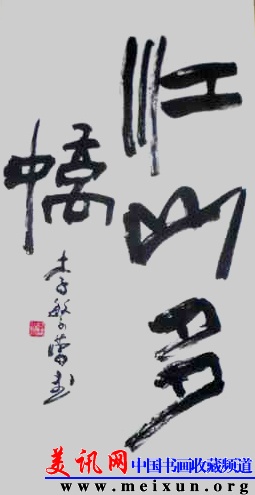 江山多
嬌
李
美讯网 中国书画收藏频道
www.meixun.org